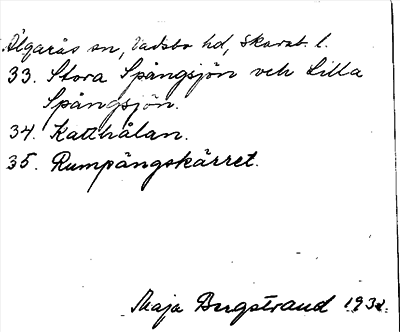 Älgarås sn, Vadsbo hd, Skarab. l.
33. Stora Spångsjön och Lilla
Spångsjön.
34. Katthålan.
35. Rumpängskärret.
Maja Bergstrand 1932.